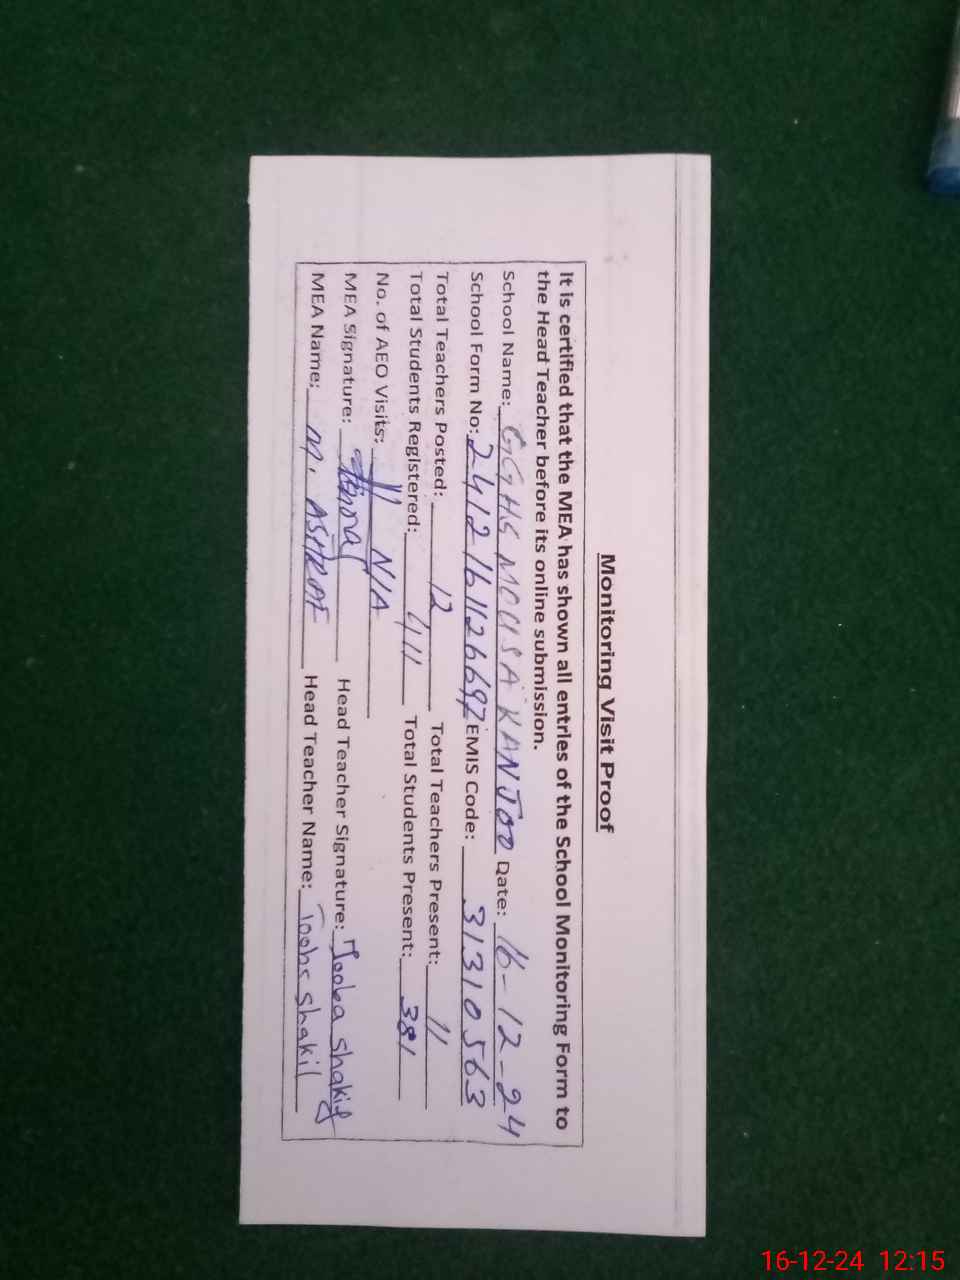 Monitoring Visit Proof
It is certified that the MEA has shown all entries of the School Monitoring Form to
the Head Teacher before its online submission.
School Name: GGHS MOUSA KANJOO Date: 16-12-24
School Form No: 2412161126697 EMIS Code: 31310563
Total Teachers Posted: 12 Total Teachers Present: 11
Total Students Registered: 411 Total Students Present: 381
No. of AEO Visits: N/A
MEA Signature: Head Teacher Signature: Tooba Shakil
MEA Name: M. ASHRAF Head Teacher Name: Tooba Shakil
16-12-24 12:15